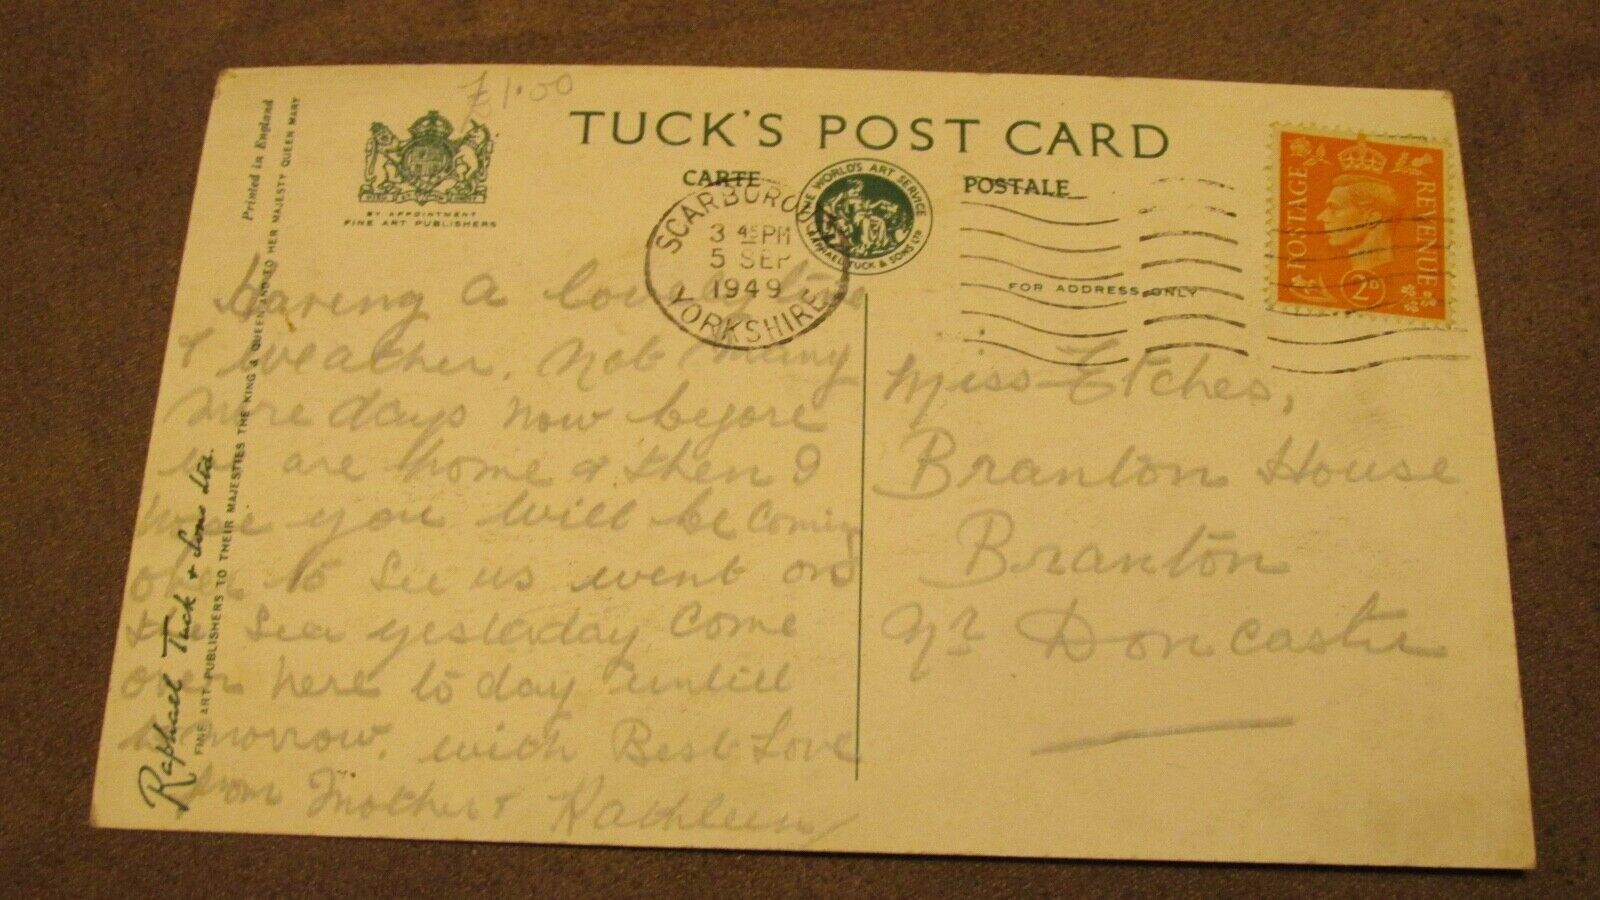 £1.00
TUCK'S POST CARD
CARTE POSTALE
BY APPOINTMENT
FINE ART PUBLISHERS
THE WORLD'S ART SERVICE
RAPHAEL TUCK & SONS LTD
SCARBOROUGH
3 45 PM
5 SEP
1949
YORKSHIRE
POSTAGE
REVENUE
2D
FOR ADDRESS ONLY
Printed in England
FINE ART PUBLISHERS TO THEIR MAJESTIES THE KING & QUEEN AND TO HER MAJESTY QUEEN MARY
Raphael Tuck & Sons Ltd.
Having a lovely time
& weather. Not many
more days now before
we are home & then I
hope you will be coming
over to see us went on
the sea yesterday come
over here to day untill
tomorrow. with Best Love
from Mother & Kathleen
Miss Etches,
Branton House
Branton
Nr Doncaster